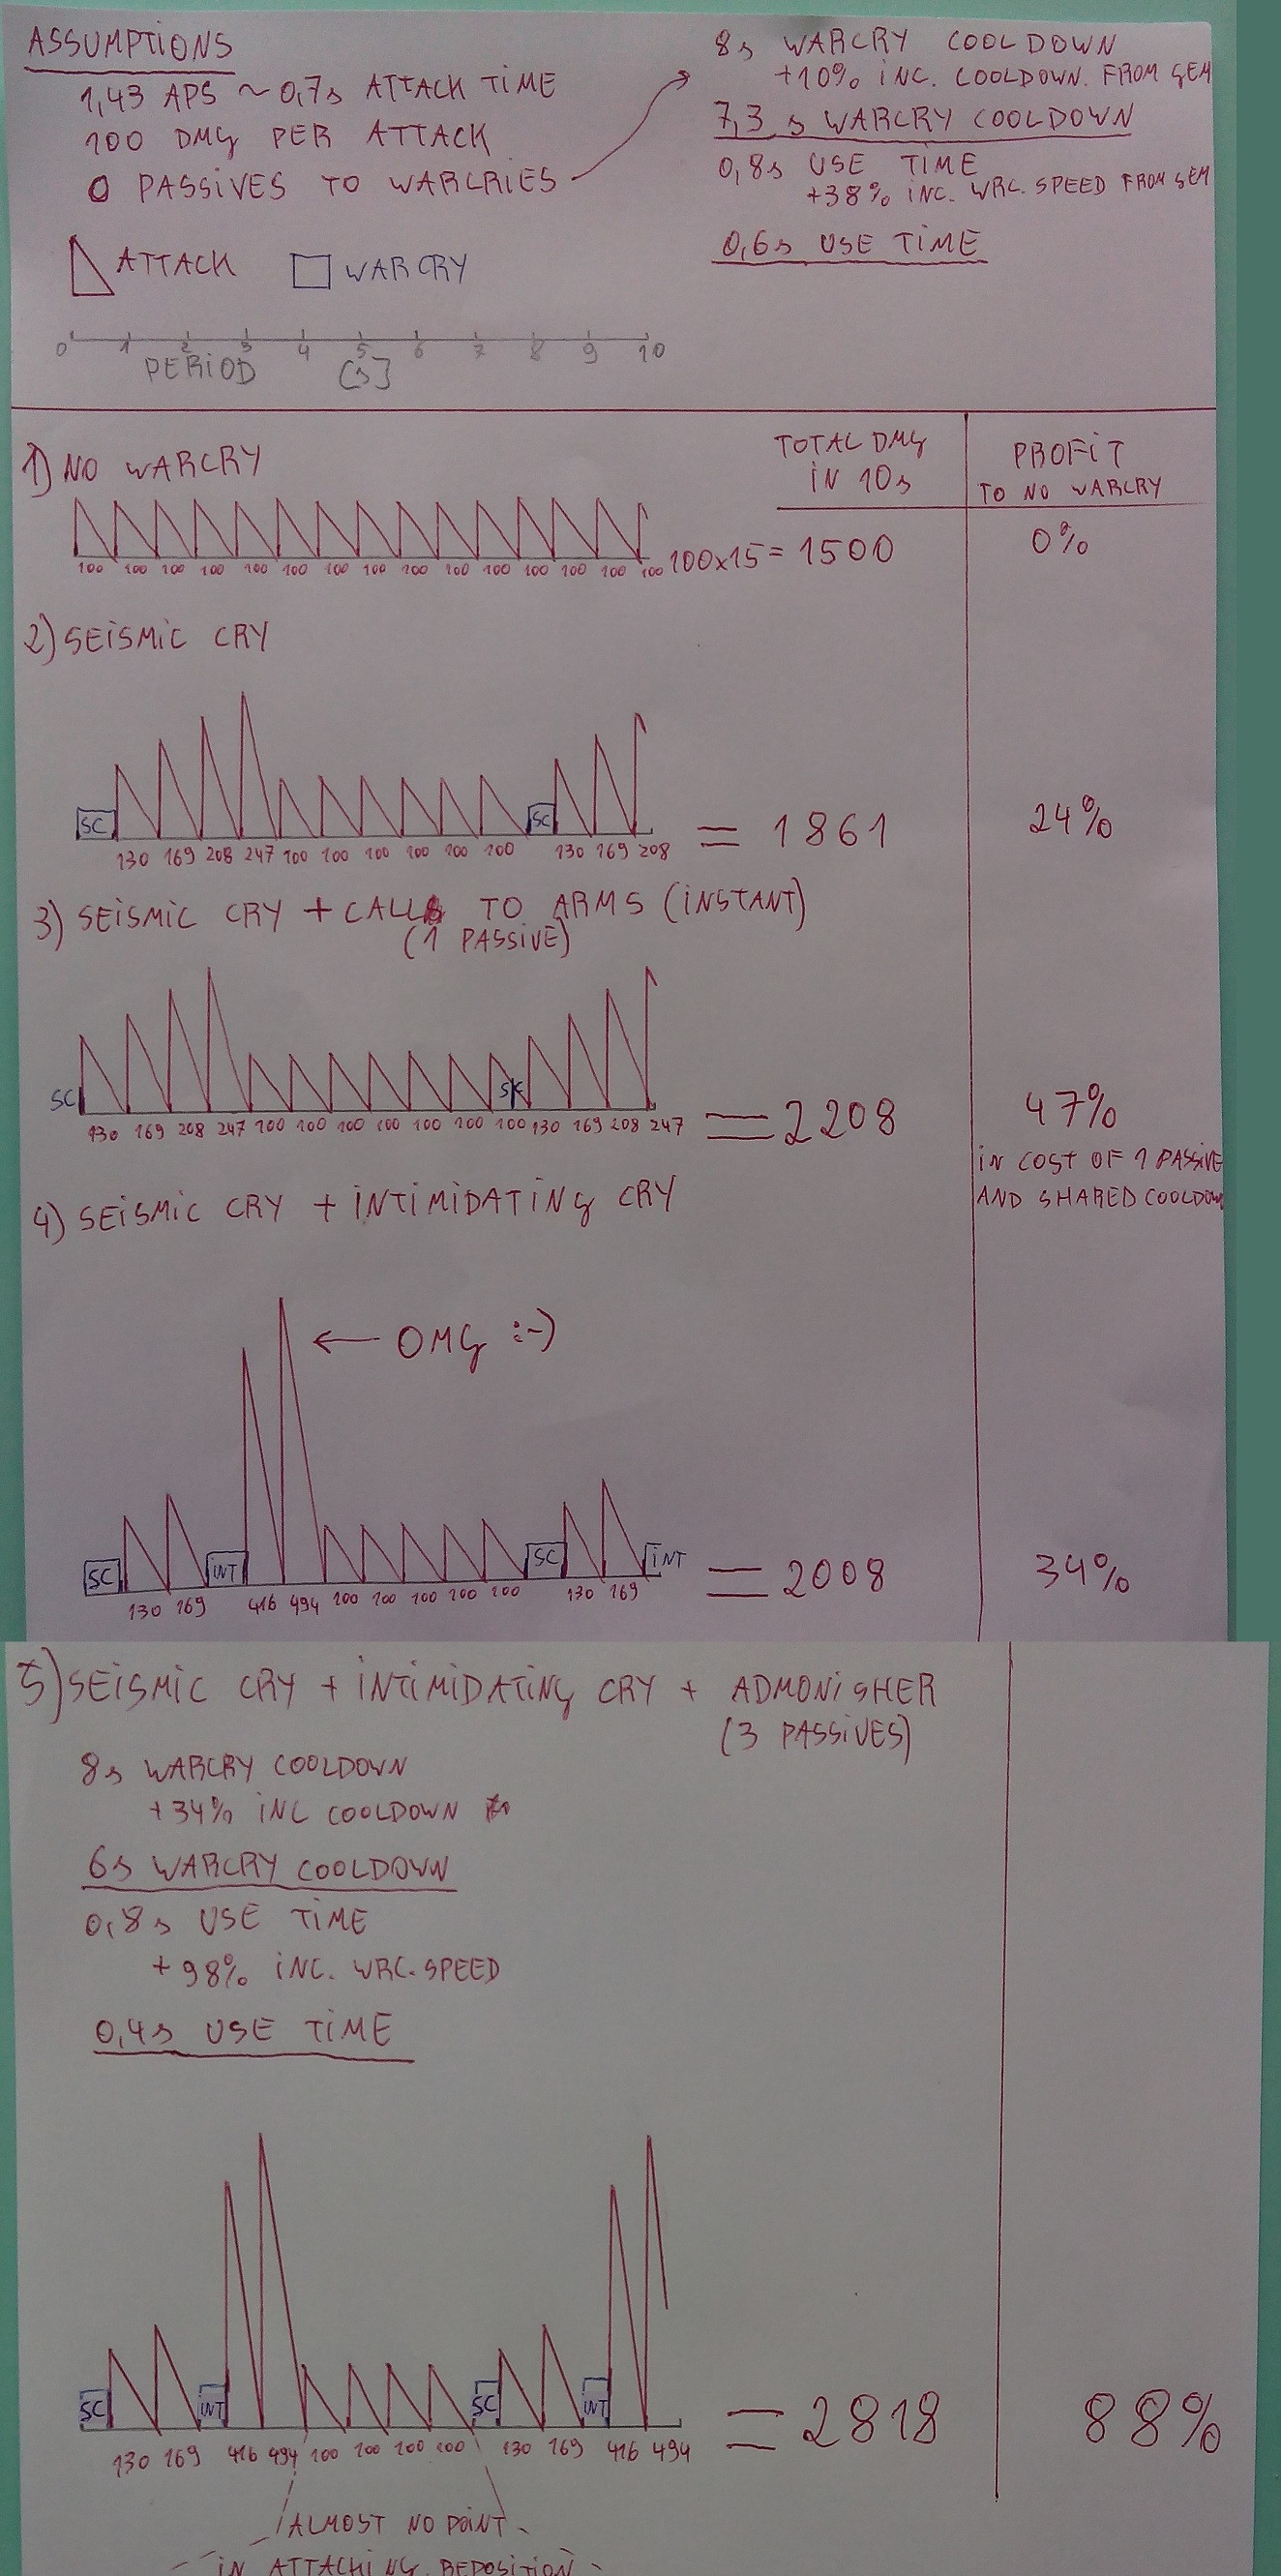 ASSUMPTIONS
1,43 APS ~ 0,7s ATTACK TIME
100 DMG PER ATTACK
0 PASSIVES TO WARCRIES
8s WARCRY COOLDOWN
+10% INC. COOLDOWN. FROM GEM
7,3 s WARCRY COOLDOWN
0,8s USE TIME
+38% INC. WRC. SPEED FROM GEM
0,6s USE TIME
ATTACK WARCRY
0 1 2 3 4 5 6 7 8 9 10
PERIOD [s]
TOTAL DMG IN 10s
PROFIT TO NO WARCRY
1) NO WARCRY
100 100 100 100 100 100 100 100 100 100 100 100 100 100 100
100x15 = 1500
0%
2) SEISMIC CRY
SC SC
130 169 208 247 100 100 100 100 100 100 130 169 208
= 1861
24%
3) SEISMIC CRY + CALL TO ARMS (INSTANT)
(1 PASSIVE)
SC SC
130 169 208 247 100 100 100 100 100 100 100 130 169 208 247
= 2208
47%
IN COST OF 1 PASSIVE
AND SHARED COOLDOWN
4) SEISMIC CRY + INTIMIDATING CRY
← OMG :-)
SC INT SC INT
130 169 416 494 100 100 100 100 100 130 169
= 2008
34%
5) SEISMIC CRY + INTIMIDATING CRY + ADMONISHER
(3 PASSIVES)
8s WARCRY COOLDOWN
+34% INC COOLDOWN
6s WARCRY COOLDOWN
0,8s USE TIME
+98% INC. WRC. SPEED
0,4s USE TIME
SC INT SC INT
130 169 416 494 100 100 100 100 130 169 416 494
= 2818
88%
ALMOST NO POINT
IN ATTACHING. REPOSITION